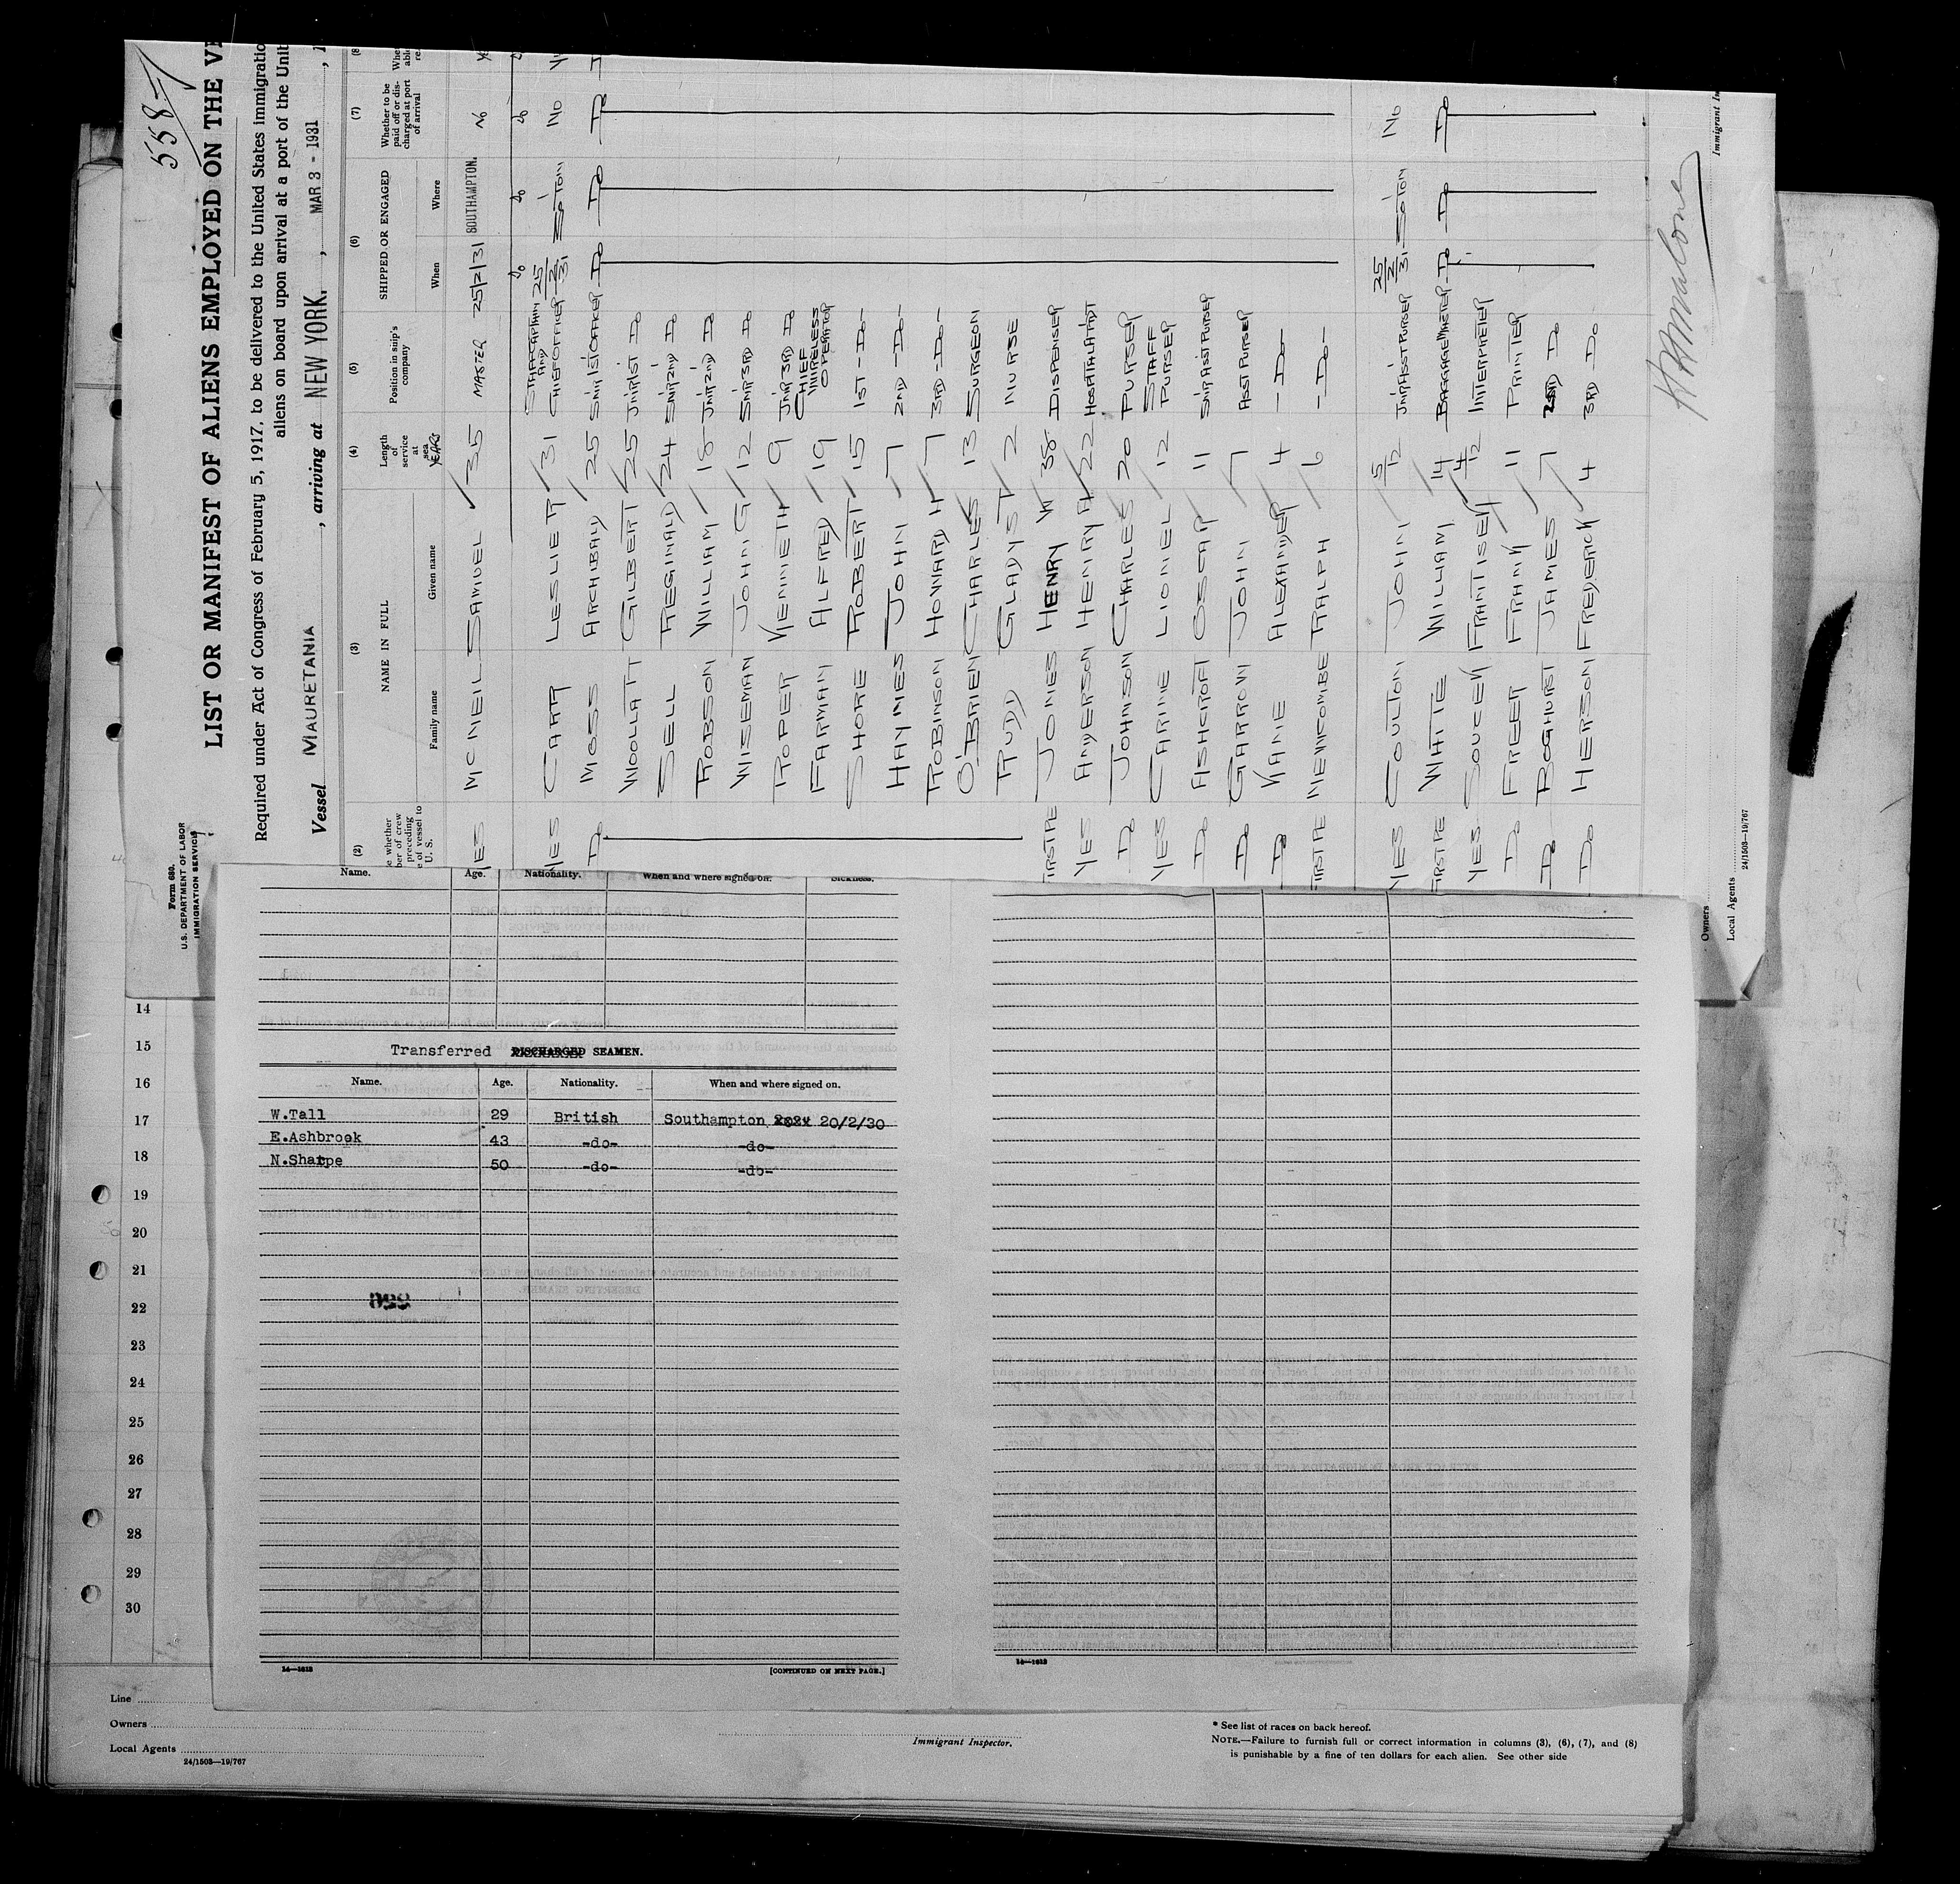 558
LIST OR MANIFEST OF ALIENS EMPLOYED ON THE
Required under Act of Congress of February 5, 1917, to be delivered to the United States
aliens on board upon arrival at a port of the
Vessel MAURETANIA, arriving at NEW YORK., MAR 3 - 1931
Form 680.
U.S. DEPARTMENT OF LABOR
IMMIGRATION SERVICE
(2) (3) (4) (5) (6) (7)
whether
of crew
preceding
of vessel to
U. S.
NAME IN FULL
Family name Given name
Length
of
service
at
sea
YEARS
Position in ship's
company
SHIPPED OR ENGAGED
When Where
Whether to be
paid off or dis-
charged at port
of arrival
YES MCNEIL SAMUEL 35 MASTER 25/2/31 SOUTHAMPTON. NO
YES CARR LESLIE R 31 STAFF CAPTAIN AND CHIEF OFFICER 25/2/31 S'OTON NO
DO MOSS ARCHIBALD 25 SNR 1ST OFFICER DO DO DO
WOOLLATT GILBERT 25 JNR 1ST DO
SELL REGINALD 24 SNR 2ND DO
ROBSON WILLIAM 18 JNR 2ND DO
WISEMAN JOHN G 12 SNR 3RD DO
ROPER KENNETH 9 JNR 3RD DO
FARMAN ALFRED 19 CHIEF WIRELESS OPERATOR
SHORE ROBERT 15 1ST - DO -
HAYNES JOHN 7 2ND - DO -
ROBINSON HOWARD H 7 3RD - DO -
O'BRIEN CHARLES 13 SURGEON
RUDD GLADYS T 2 NURSE
FIRST TRE JONES HENRY W 38 DISPENSER
YES ANDERSON HENRY A 22 HOSPITAL ATTDT
DO JOHNSON CHARLES 20 PURSER
YES CARINE LIONEL 12 STAFF PURSER
DO ASHCROFT OSCAR 11 SNR ASST PURSER
DO GARROW JOHN 7 ASST PURSER
DO KANE ALEXANDER 4 - DO -
FIRST TRE NEWCOMBE RALPH 6 - DO -
YES COULTON JOHN 5/12 JNR ASST PURSER 25/2/31 S'OTON NO
FIRST TRE WHITE WILLIAM 14 BAGGAGE MASTER DO DO DO
YES SOUCEK FRANTISEK 4/12 INTERPRETER
DO FREER FRANK 11 PRINTER
DO BOGHURST JAMES 7 2ND DO
DO HERSON FREDERICK 4 3RD - DO
Immigrant
Owners
Local Agents
24/1503-19/767
Name. Age. Nationality. When and where signed on. Sickness.
Transferred DISCHARGED SEAMEN.
Name. Age. Nationality. When and where signed on.
W.Tall 29 British Southampton 20/2/30
E.Ashbrook 43 -do- -do-
N.Sharpe 50 -do- -do-
14—1613 [CONTINUED ON NEXT PAGE.]
14—1613
14
15
16
17
18
19
20
21
22
23
24
25
26
27
28
29
30
Line
Owners
Local Agents
24/1503—19/767
Immigrant Inspector.
* See list of races on back hereof.
NOTE.—Failure to furnish full or correct information in columns (3), (6), (7), and (8)
is punishable by a fine of ten dollars for each alien. See other side